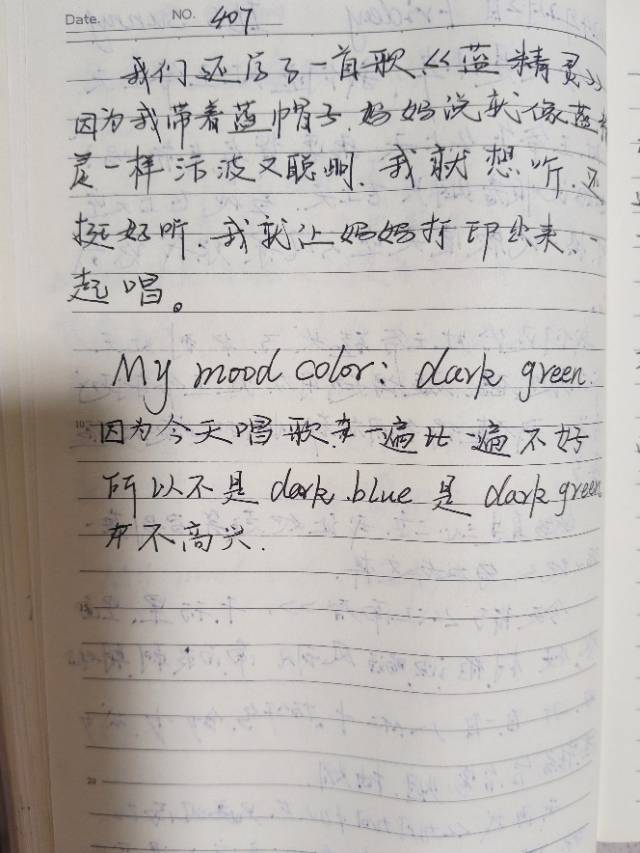 Date. NO. 407
我们还写了一首歌《蓝精灵》
因为我带着蓝帽子.妈妈说就像蓝精
灵一样活波又聪明.我就想听.还
挺好听.我就让妈妈打印出来.一
起唱。
My mood color: dark green.
10
因为今天唱歌来一遍比一遍不好
所以不是 dark blue 是 dark green
不高兴.
20